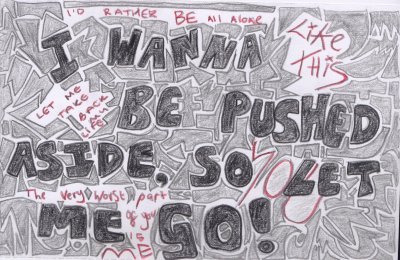 I'D RATHER BE All AlONE
I WANNA
Like
THIS
LET ME
TAKE
BACK
BE PUSHED
ASIDE, SO LET
YOU
The very worst part
of you
is
ME
ME GO!